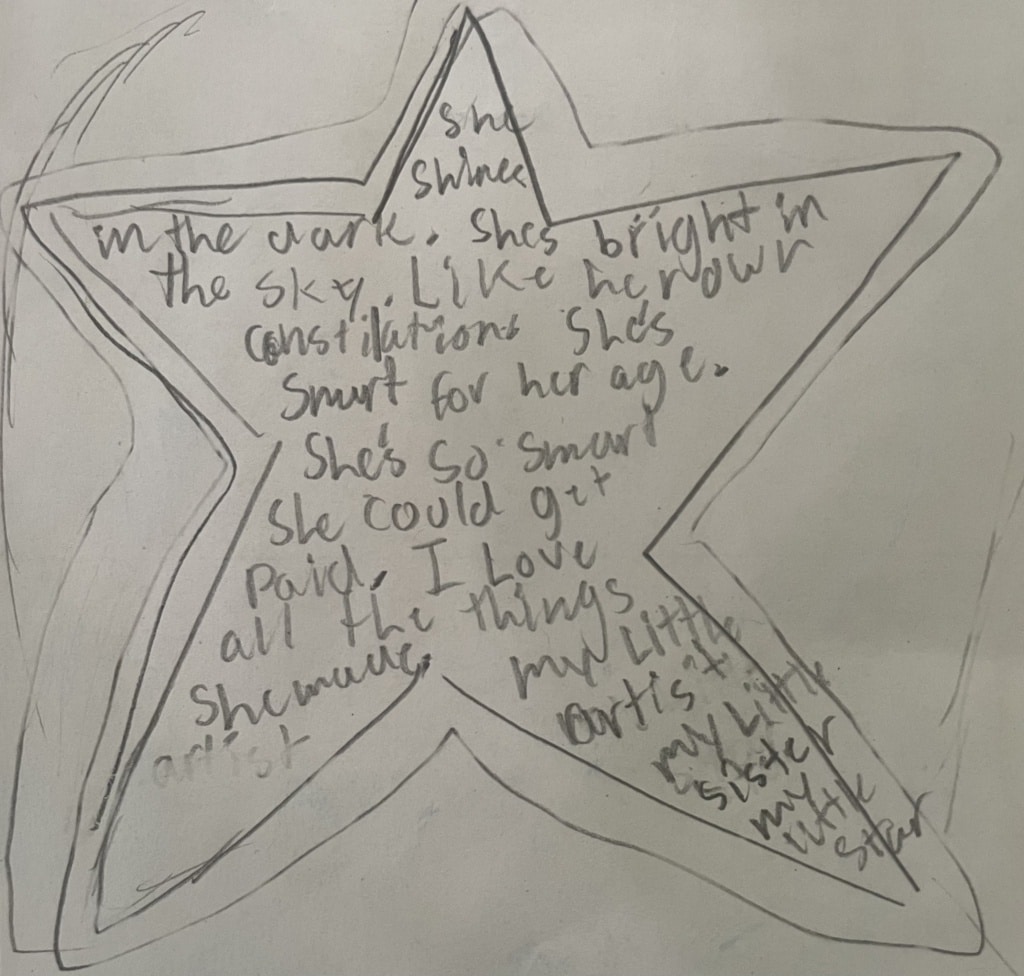 she
shines
in the dark. She's bright in
the sky. Like her own
constilations She's
Smart for her age.
She's so smart
She could get
paid. I Love
all the things
She made.
artist
my Little
artist
my Little
sister
my
little
star